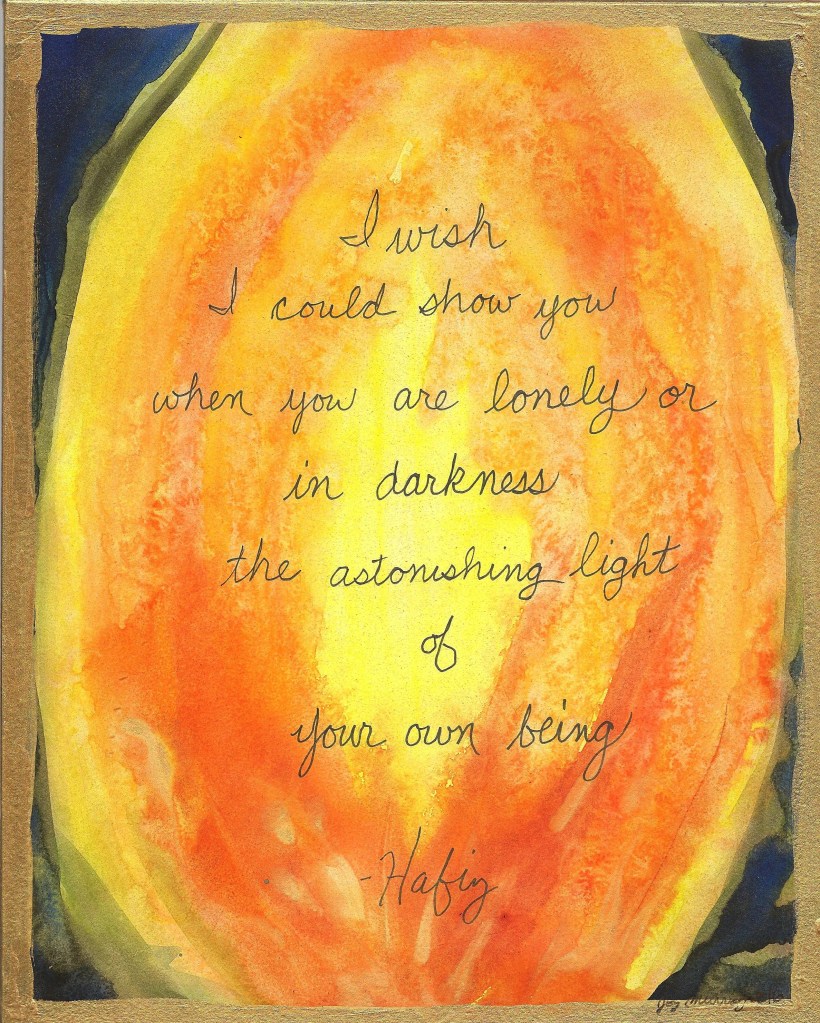 I wish
I could show you
when you are lonely or
in darkness
the astonishing light
of
your own being
-Hafiz